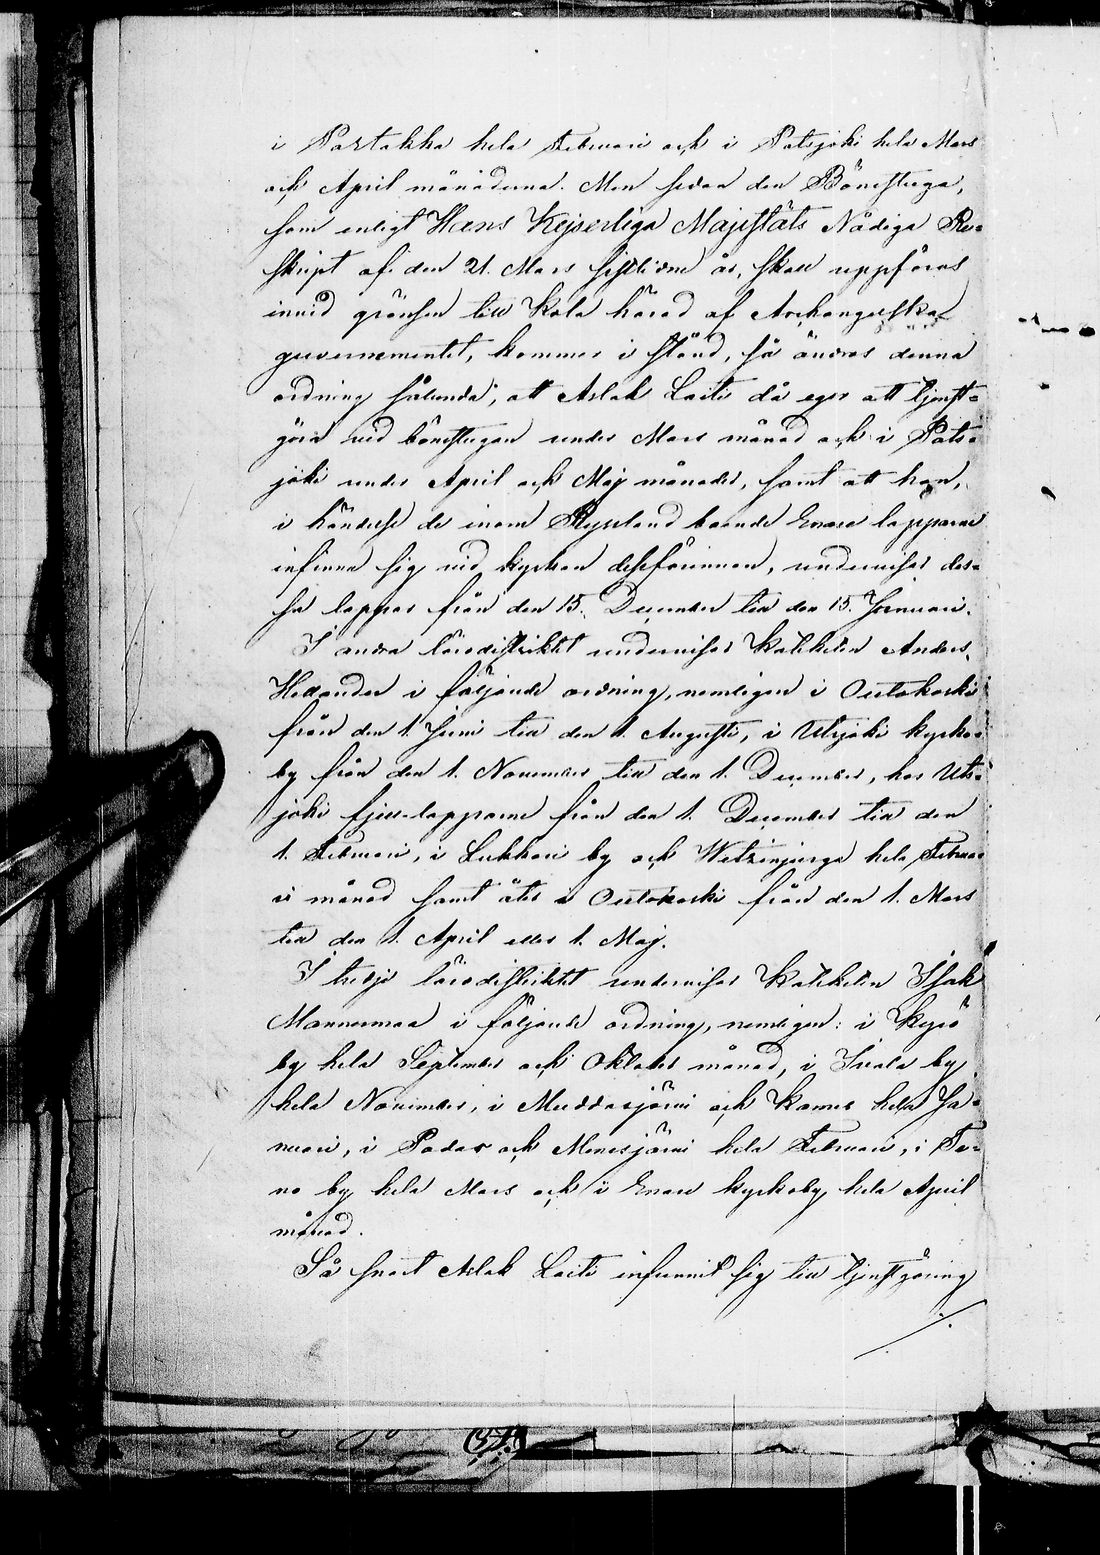 i Partakka hela Februari och i Patsjoki hela Mars
och April månaderna. Men sedan den Bönestuga,
som enligt Hans Kejserliga Majestäts Nådiga Re-
skript af den 21. Mars sistlidne år, skall uppföras
invid gränsen till Kola härad af Archangelska
guvernementet, kommer i stånd, så ändras denna
ordning sålunda, att Aslak Laiti då eger att tjenst-
göra vid bönestugan under Mars månad och i Pats-
joki under April och Maj månader, samt att han,
i händelse de inom Ryssland boende Enare lapparne
infinna sig vid kyrkan dessförinnan, undervisar des-
sa lappar från den 15. December till den 15. Januari.
I andra lärodistriktet undervisar Katekten Anders
Helander i följande ordning, nemligen i Outakoski
från den 1. Juni till den 1. Augusti, i Utsjoki kyrko-
by från den 1. November till den 1. December, hos Uts-
joki fjell-lapparne från den 1. December till den
1. Februari, i Lukkari by och Wetsinjarga hela Februa-
ri månad samt åter i Outakoski från den 1. Mars
till den 1. April eller 1. Maj.
I tredje lärodistriktet undervisar Katekten Isak
Mannermaa i följande ordning, nemligen: i Kyrö
by hela September och Oktober månad, i Ivalo by
hela November, i Muddasjärvi och Kamas hela Ja-
nuari, i Padar och Menesjärvi hela Februari, i
by hela Mars och i Enare kyrkoby hela April
månad.
Så snart Aslak Laiti infunnit sig till tjenstgöring
./.